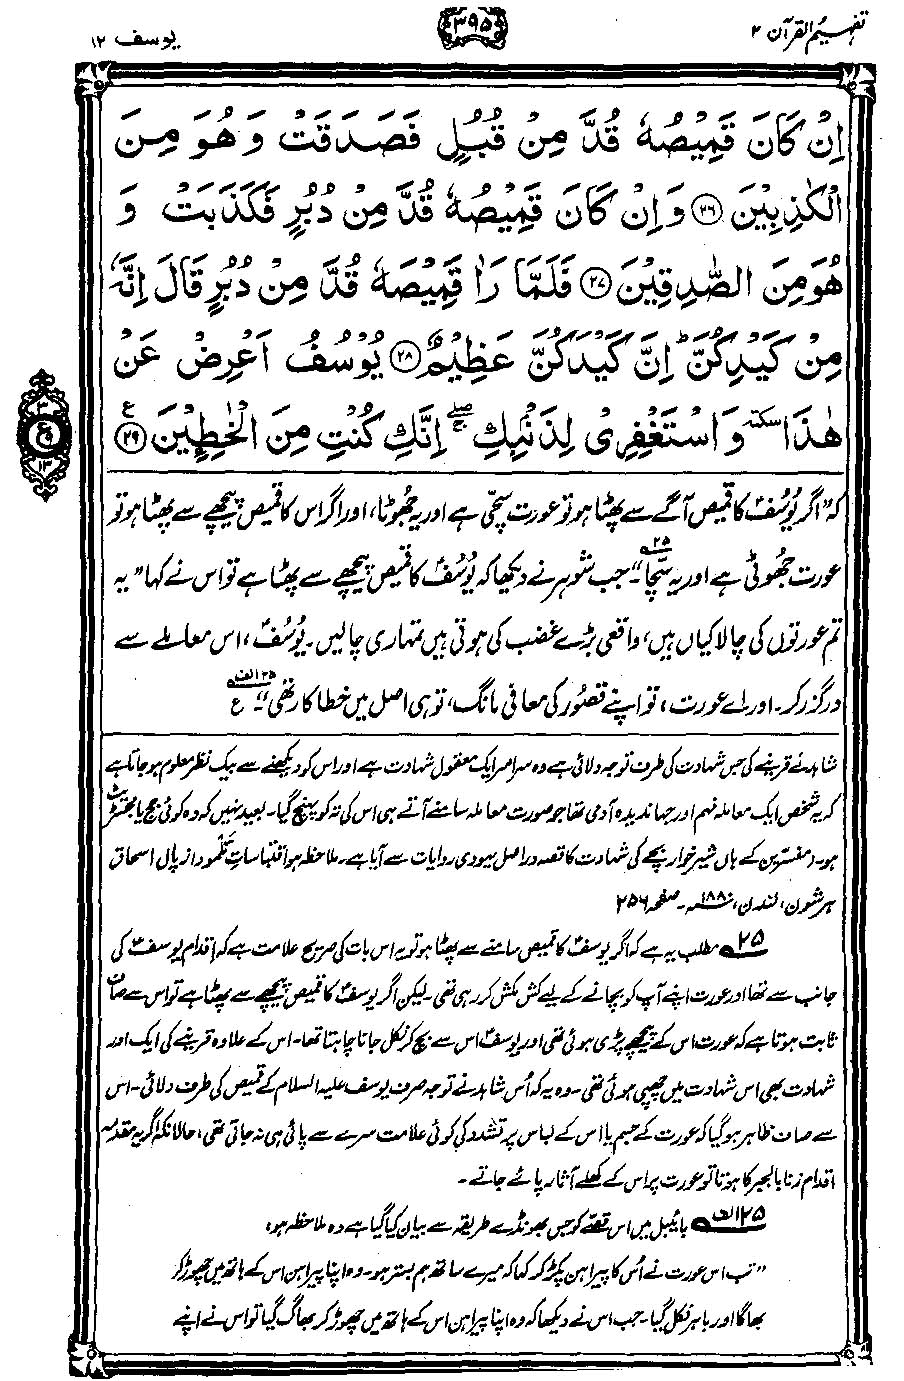 تفہیم القرآن ۲
۳۹۵
یوسف ۱۲
اِنْ كَانَ قَمِيْصُهٗ قُدَّ مِنْ قُبُلٍ فَصَدَقَتْ وَ هُوَ مِنَ
الْكٰذِبِيْنَ ۲۶ وَ اِنْ كَانَ قَمِيْصُهٗ قُدَّ مِنْ دُبُرٍ فَكَذَبَتْ وَ
هُوَ مِنَ الصّٰدِقِيْنَ ۲۷ فَلَمَّا رَاٰ قَمِيْصَهٗ قُدَّ مِنْ دُبُرٍ قَالَ اِنَّهٗ
مِنْ كَيْدِكُنَّ ؕ اِنَّ كَيْدَكُنَّ عَظِيْمٌ ۲۸ يُوْسُفُ اَعْرِضْ عَنْ
هٰذَا سكتة وَ اسْتَغْفِرِيْ لِذَنْۢبِكِ ۚۖ اِنَّكِ كُنْتِ مِنَ الْخٰطِـِٕيْنَ ۲۹ ع
۳
ع
۱۳
کہ ”اگر یُوسُفؑ کا قمیص آگے سے پھٹا ہو تو عورت سچّی ہے اور یہ جُھوٹا، اور اگر اس کا قمیص پیچھے سے پھٹا ہو تو
عورت جُھوٹی ہے اور یہ سچّا“۔ ۲۵ جب شوہر نے دیکھا کہ یُوسُفؑ کا قمیص پیچھے سے پھٹا ہے تو اس نے کہا ”یہ
تم عورتوں کی چالاکیاں ہیں، واقعی بڑے غضب کی ہوتی ہیں تمہاری چالیں۔ یُوسُفؑ، اس معاملے سے
درگزر کر۔ اور اے عورت، تو اپنے قصُور کی معافی مانگ، تو ہی اصل میں خطا کار تھی“۔ ۲۵الف ع
شاہد نے قرینے کی جس شہادت کی طرف توجہ دلائی ہے وہ سراسر ایک معقول شہادت ہے اور اس کو دیکھنے سے بیک نظر معلوم ہو جاتا ہے
کہ یہ شخص ایک معاملہ فہم اور جہاندیدہ آدمی تھا جو صورت معاملہ سامنے آتے ہی اس کی تہ کو پہنچ گیا۔ بعید نہیں کہ وہ کوئی جج یا مجسٹریٹ
ہو۔ (مفسّرین کے ہاں شیر خوار بچے کی شہادت کا قصہ دراصل یہودی روایات سے آیا ہے۔ ملاحظہ ہو اقتباسات تَلْمُود از پال اسحاق
ہرشون، لندن، ۱۸۸۰ء۔ صفحہ ۲۵۶
۲۵ مطلب یہ ہے کہ اگر یوسفؑ کا قمیص سامنے سے پھٹا ہو تو یہ اس بات کی صریح علامت ہے کہ اقدام یوسفؑ کی
جانب سے تھا اور عورت اپنے آپ کو بچانے کے لیے کش مکش کر رہی تھی۔ لیکن اگر یوسفؑ کا قمیص پیچھے سے پھٹا ہے تو اس سے صاف
ثابت ہوتا ہے کہ عورت اس کے پیچھے پڑی ہوئی تھی اور یوسفؑ اس سے بچ کر نکل جانا چاہتا تھا۔ اس کے علاوہ قرینے کی ایک اور
شہادت بھی اس شہادت میں چھپی ہوئی تھی۔ وہ یہ کہ اُس شاہد نے توجہ صرف یوسف علیہ السلام کے قمیص کی طرف دلائی۔ اس
سے صاف ظاہر ہو گیا کہ عورت کے جسم یا اس کے لباس پر تشدد کی کوئی علامت سرے سے پائی ہی نہ جاتی تھی، حالانکہ اگر یہ مقدمہ
اقدام زنا بالجبر کا ہوتا تو عورت پر اس کے کھلے آثار پائے جاتے۔
۲۵الف بائیبل میں اس قصّے کو جس بھونڈے طریقہ سے بیان کیا گیا ہے وہ ملاحظہ ہو:
”تب اس عورت نے اُس کا پیراہن پکڑ کر کہا کہ میرے ساتھ ہم بستر ہو۔ وہ اپنا پیراہن اس کے ہاتھ میں چھوڑ کر
بھاگا اور باہر نکل گیا۔ جب اس نے دیکھا کہ وہ اپنا پیراہن اس کے ہاتھ میں چھوڑ کر بھاگ گیا تو اس نے اپنے